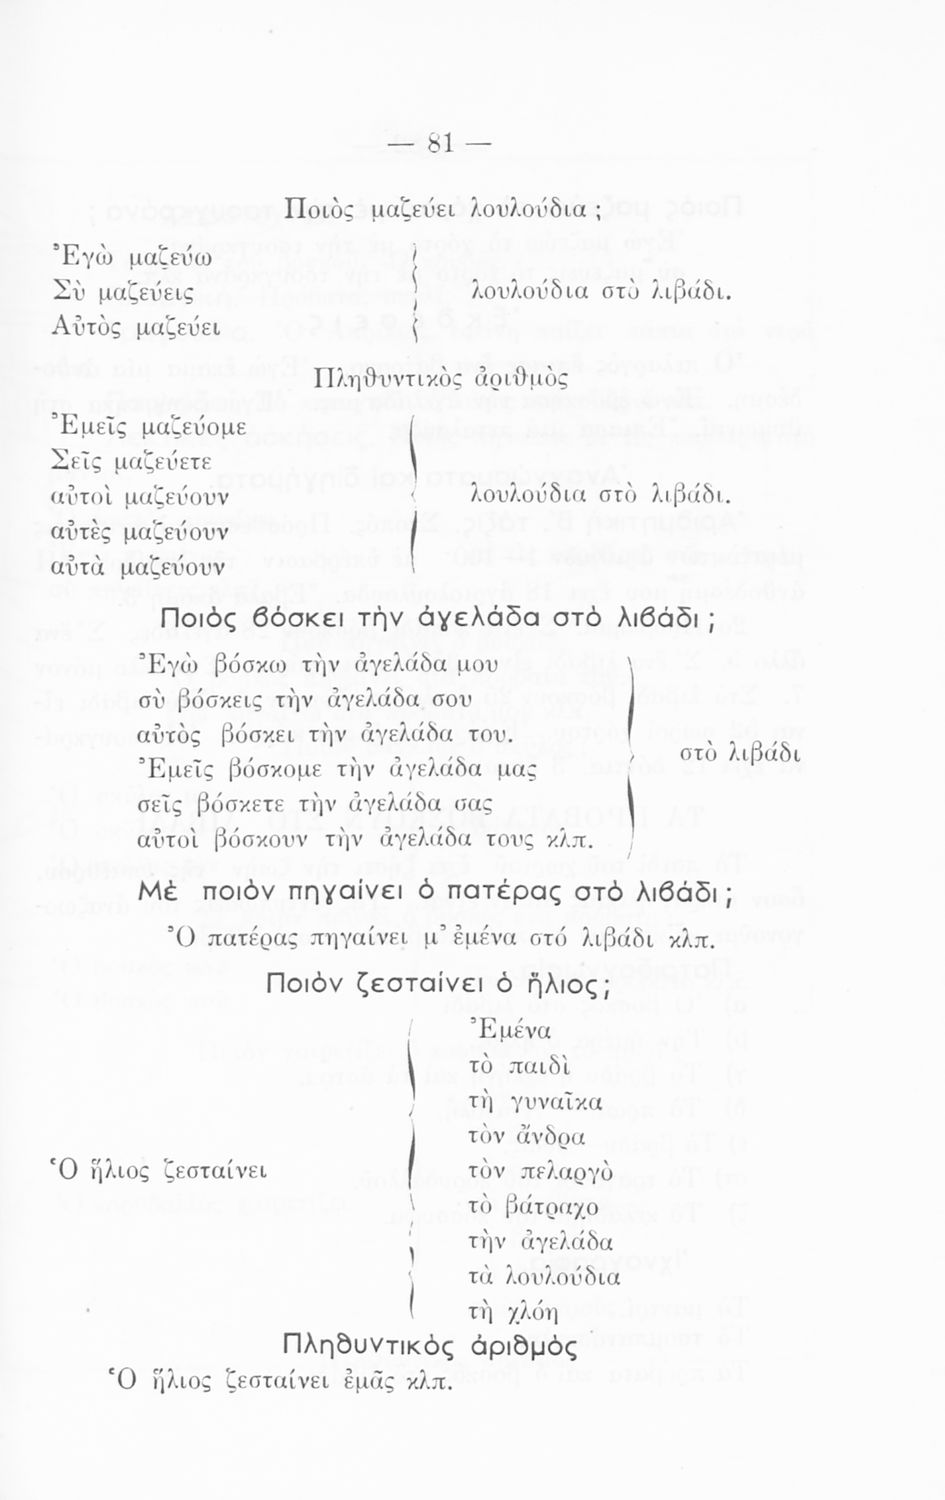 — 81 —
Ποιὸς μαζεύει λουλούδια ;
Ἐγὼ μαζεύω
Σὺ μαζεύεις
λουλούδια στὸ λιβάδι.
Αὐτὸς μαζεύει
Πληθυντικὸς ἀριθμὸς
Ἐμεῖς μαζεύομε
Σεῖς μαζεύετε
αὐτοὶ μαζεύουν
λουλούδια στὸ λιβάδι.
αὐτὲς μαζεύουν
αὐτὰ μαζεύουν
Ποιὸς βόσκει τὴν ἀγελάδα στὸ λιβάδι ;
Ἐγὼ βόσκω τὴν ἀγελάδα μου
σὺ βόσκεις τὴν ἀγελάδα σου
αὐτὸς βόσκει τὴν ἀγελάδα του.
στὸ λιβάδι
Ἐμεῖς βόσκομε τὴν ἀγελάδα μας
σεῖς βόσκετε τὴν ἀγελάδα σας
αὐτοὶ βόσκουν τὴν ἀγελάδα τους κλπ.
Μὲ ποιὸν πηγαίνει ὁ πατέρας στὸ λιβάδι ;
Ὁ πατέρας πηγαίνει μ' ἐμένα στό λιβάδι κλπ.
Ποιὸν ζεσταίνει ὁ ἥλιος ;
Ἐμένα
τὸ παιδὶ
τὴ γυναῖκα
τὸν ἄνδρα
Ὁ ἥλιος ζεσταίνει
τὸν πελαργὸ
τὸ βάτραχο
τὴν ἀγελάδα
τὰ λουλούδια
τὴ χλόη
Πληθυντικὸς ἀριθμὸς
Ὁ ἥλιος ζεσταίνει ἐμᾶς κλπ.